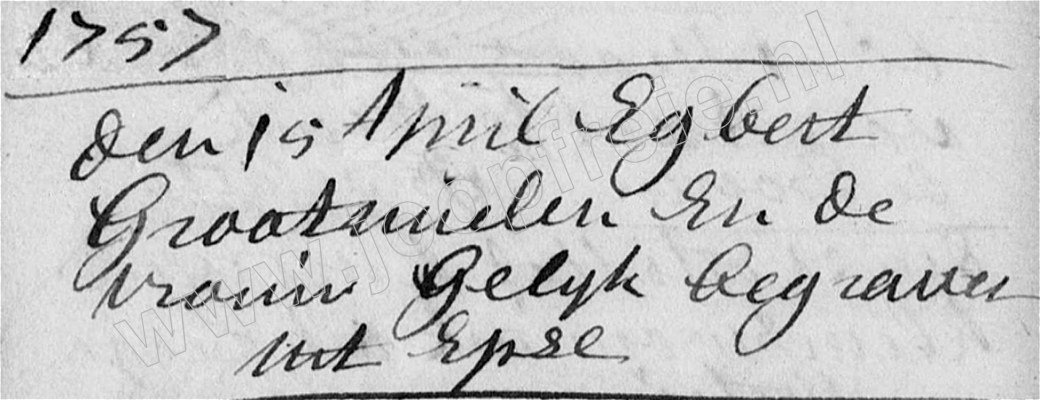 1757
den 15 April Egbert
Grootwielen En de
vrouw Gelyk begraven
uut Epse
www.joopfirsje.nl